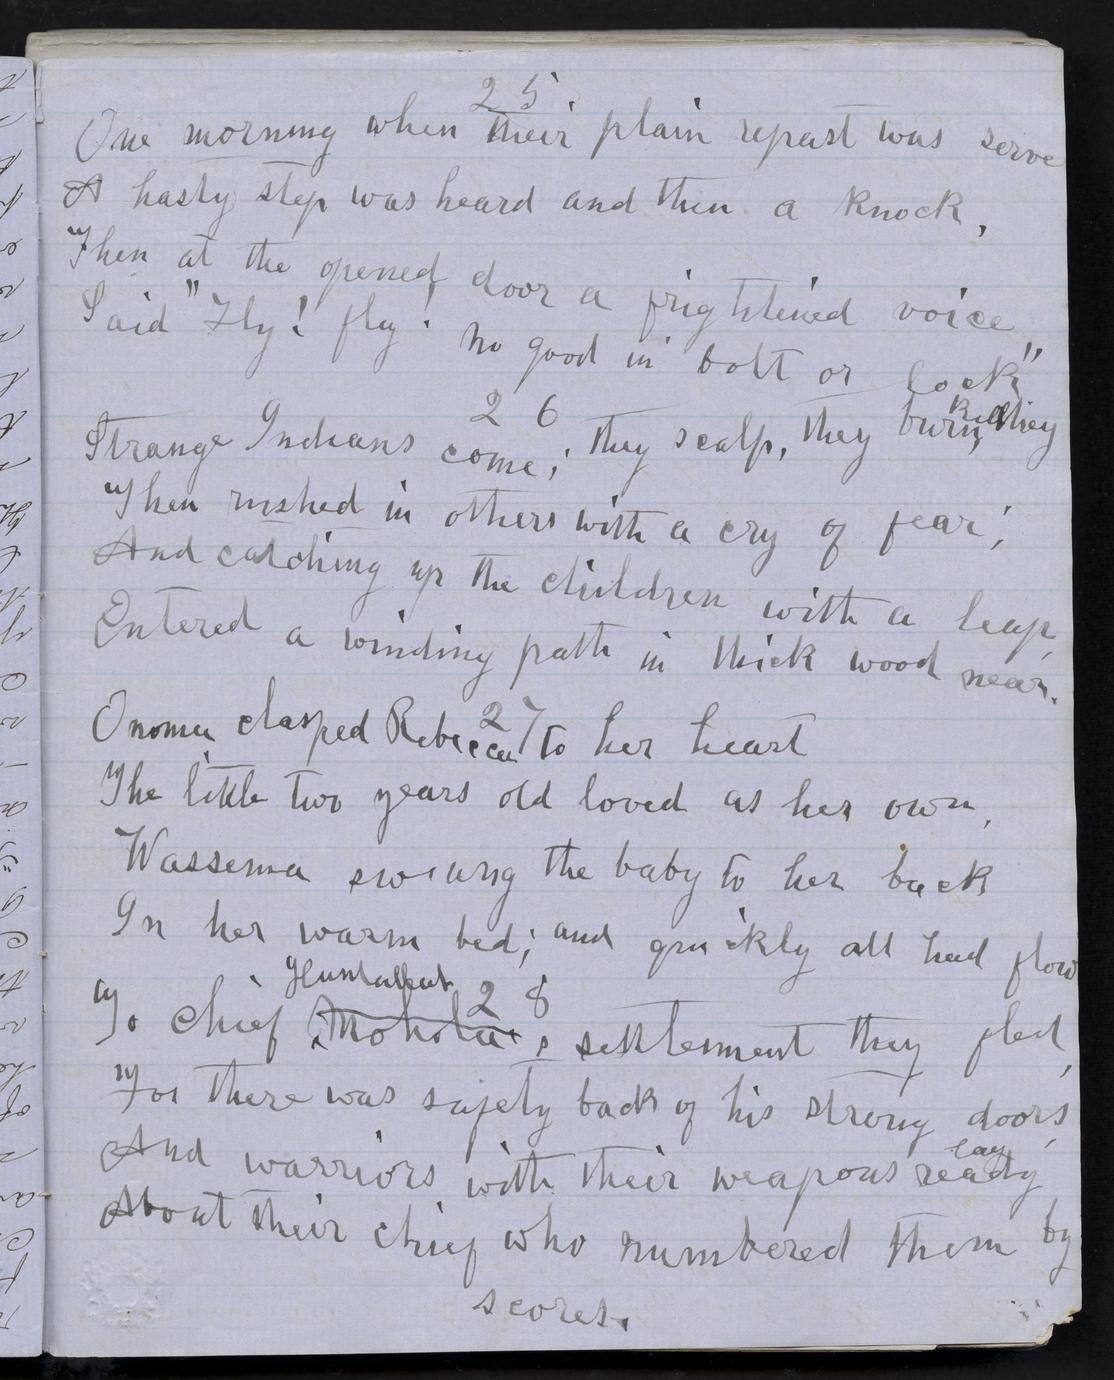 25
One morning when their plain repast was serve
A hasty step was heard and then a knock,
Then at the opened door a frightened voice
Said "Fly! fly! no good in bolt or lock"
26
Strange Indians come; they scalp, they burn, they kill
Then rushed in others with a cry of fear;
And catching up the children with a leap
Entered a winding path in thick wood near.
27
Onoma clasped Rebecca to her heart
The little two years old loved as her own,
Wassema swoung the baby to her back
In her warm bed; and quickly all had flow
28
To chief Mohola's settlement they fled,
For there was safety back of his strong doors,
And warriors with their weapons ready lay
About their chief who numbered them by
scores.